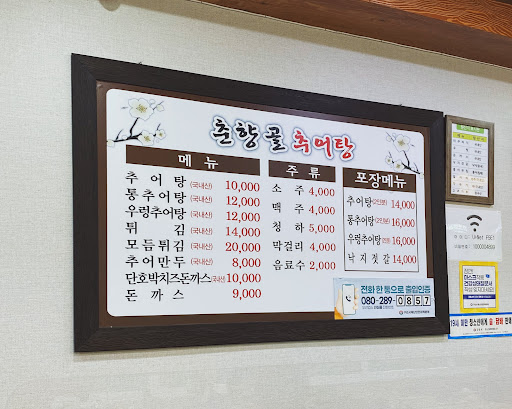 춘향골 추어탕
메뉴
추어탕 (국내산) 10,000
통추어탕 (국내산) 12,000
우렁추어탕 (국내산) 12,000
튀김 (국내산) 14,000
모듬튀김 (국내산) 20,000
추어만두 (국내산) 8,000
단호박치즈돈까스 (국내산) 10,000
돈까스 9,000
주류
소주 4,000
맥주 4,000
청하 5,000
막걸리 4,000
음료수 2,000
포장메뉴
추어탕 (2인분) 14,000
통추어탕 (2인분) 16,000
우렁추어탕 16,000
낙지젓갈 14,000
전화 한 통으로 출입인증
080-289-0857